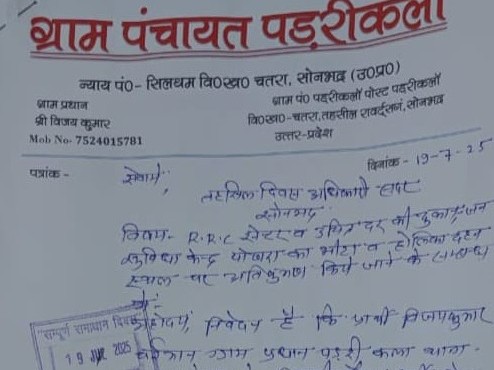 ग्राम पंचायत पड़रीकलां
न्याय पं०- सिलथम वि०ख० चतरा, सोनभद्र (उ०प्र०)
ग्राम प्रधान
श्री विजय कुमार
Mob No- 7524015781
ग्राम पं० पड़रीकलॉ पोस्ट पड़रीकलॉ
वि०ख०-चतरा,तहसील रावर्ट्सगं, सोनभद्र
उत्तर-प्रदेश
पत्रांक -
दिनांक - 19-7-25
सेवामें,
तहसिल दिवस अधिकारी सदर
सोनभद्र
विषय- R.R.C सेन्टर व उचित दर की दुकान, जन
सुविधा केन्द्र योजना का भीटा व होलिका दहन
स्थल पर अतिक्रमण किये जाने के सम्बन्ध
में-
महोदय, निवेदन है कि प्रार्थी विजय कुमार
वर्तमान ग्राम प्रधान पड़री कला थाना-
सम्पूर्ण समाधान दिवस
19 JUL 2025